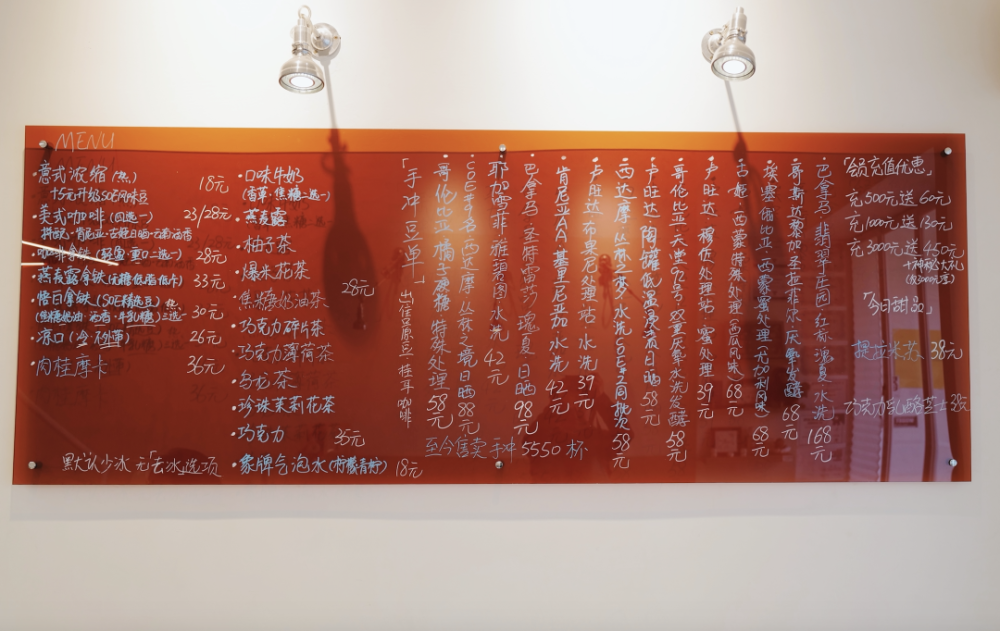 MENU
·意式浓缩(热) 18元
+15元升级SOE风味豆
·美式咖啡(四选一) 23/28元
咖啡拿铁 28元
燕麦露拿铁 33元
30元
26元
肉桂摩卡 36元
默认少冰 无「去冰」选项
·口味牛奶
(香草·焦糖二选一)
·燕麦露
·柚子茶
·爆米花茶
·焦糖奶油茶 28元
·巧克力碎片茶
·巧克力薄荷茶
·乌龙茶
·珍珠茉莉花茶
·巧克力 35元
·象牌气泡水(柠檬青柠) 18元
「手冲豆单」 出售原豆·挂耳咖啡
·哥伦比亚 橘子硬糖 特殊处理 58元
·COE 西达摩·丛林之境 日晒 88元
耶加雪菲 雅碧图 水洗 42元
·巴拿马·圣特雷莎 瑰夏 日晒 98元
·肯尼亚AA 基里尼亚加 水洗 42元
·卢旺达 布里尼处理站·水洗 39元
西达摩·丛林之梦 水洗COE#2同批次 58元
·卢旺达 陶罐低温慢速日晒 58元
·哥伦比亚 天堂92号·双重厌氧水洗发酵 58元
·卢旺达·穆伍处理站·蜜处理 39元
·古姬·西蒙特殊处理(西瓜风味) 68元
·埃塞俄比亚 西蒙蜜处理 尤加利风味 68元
·哥斯达黎加 圣拉菲尔 厌氧发酵 68元
·巴拿马 翡翠庄园 红标瑰夏 水洗 168元
至今售卖 手冲 5550 杯
「会员充值优惠」
充500元送60元
充1000元送150元
充3000元送450元
「今日甜品」
提拉米苏 38元